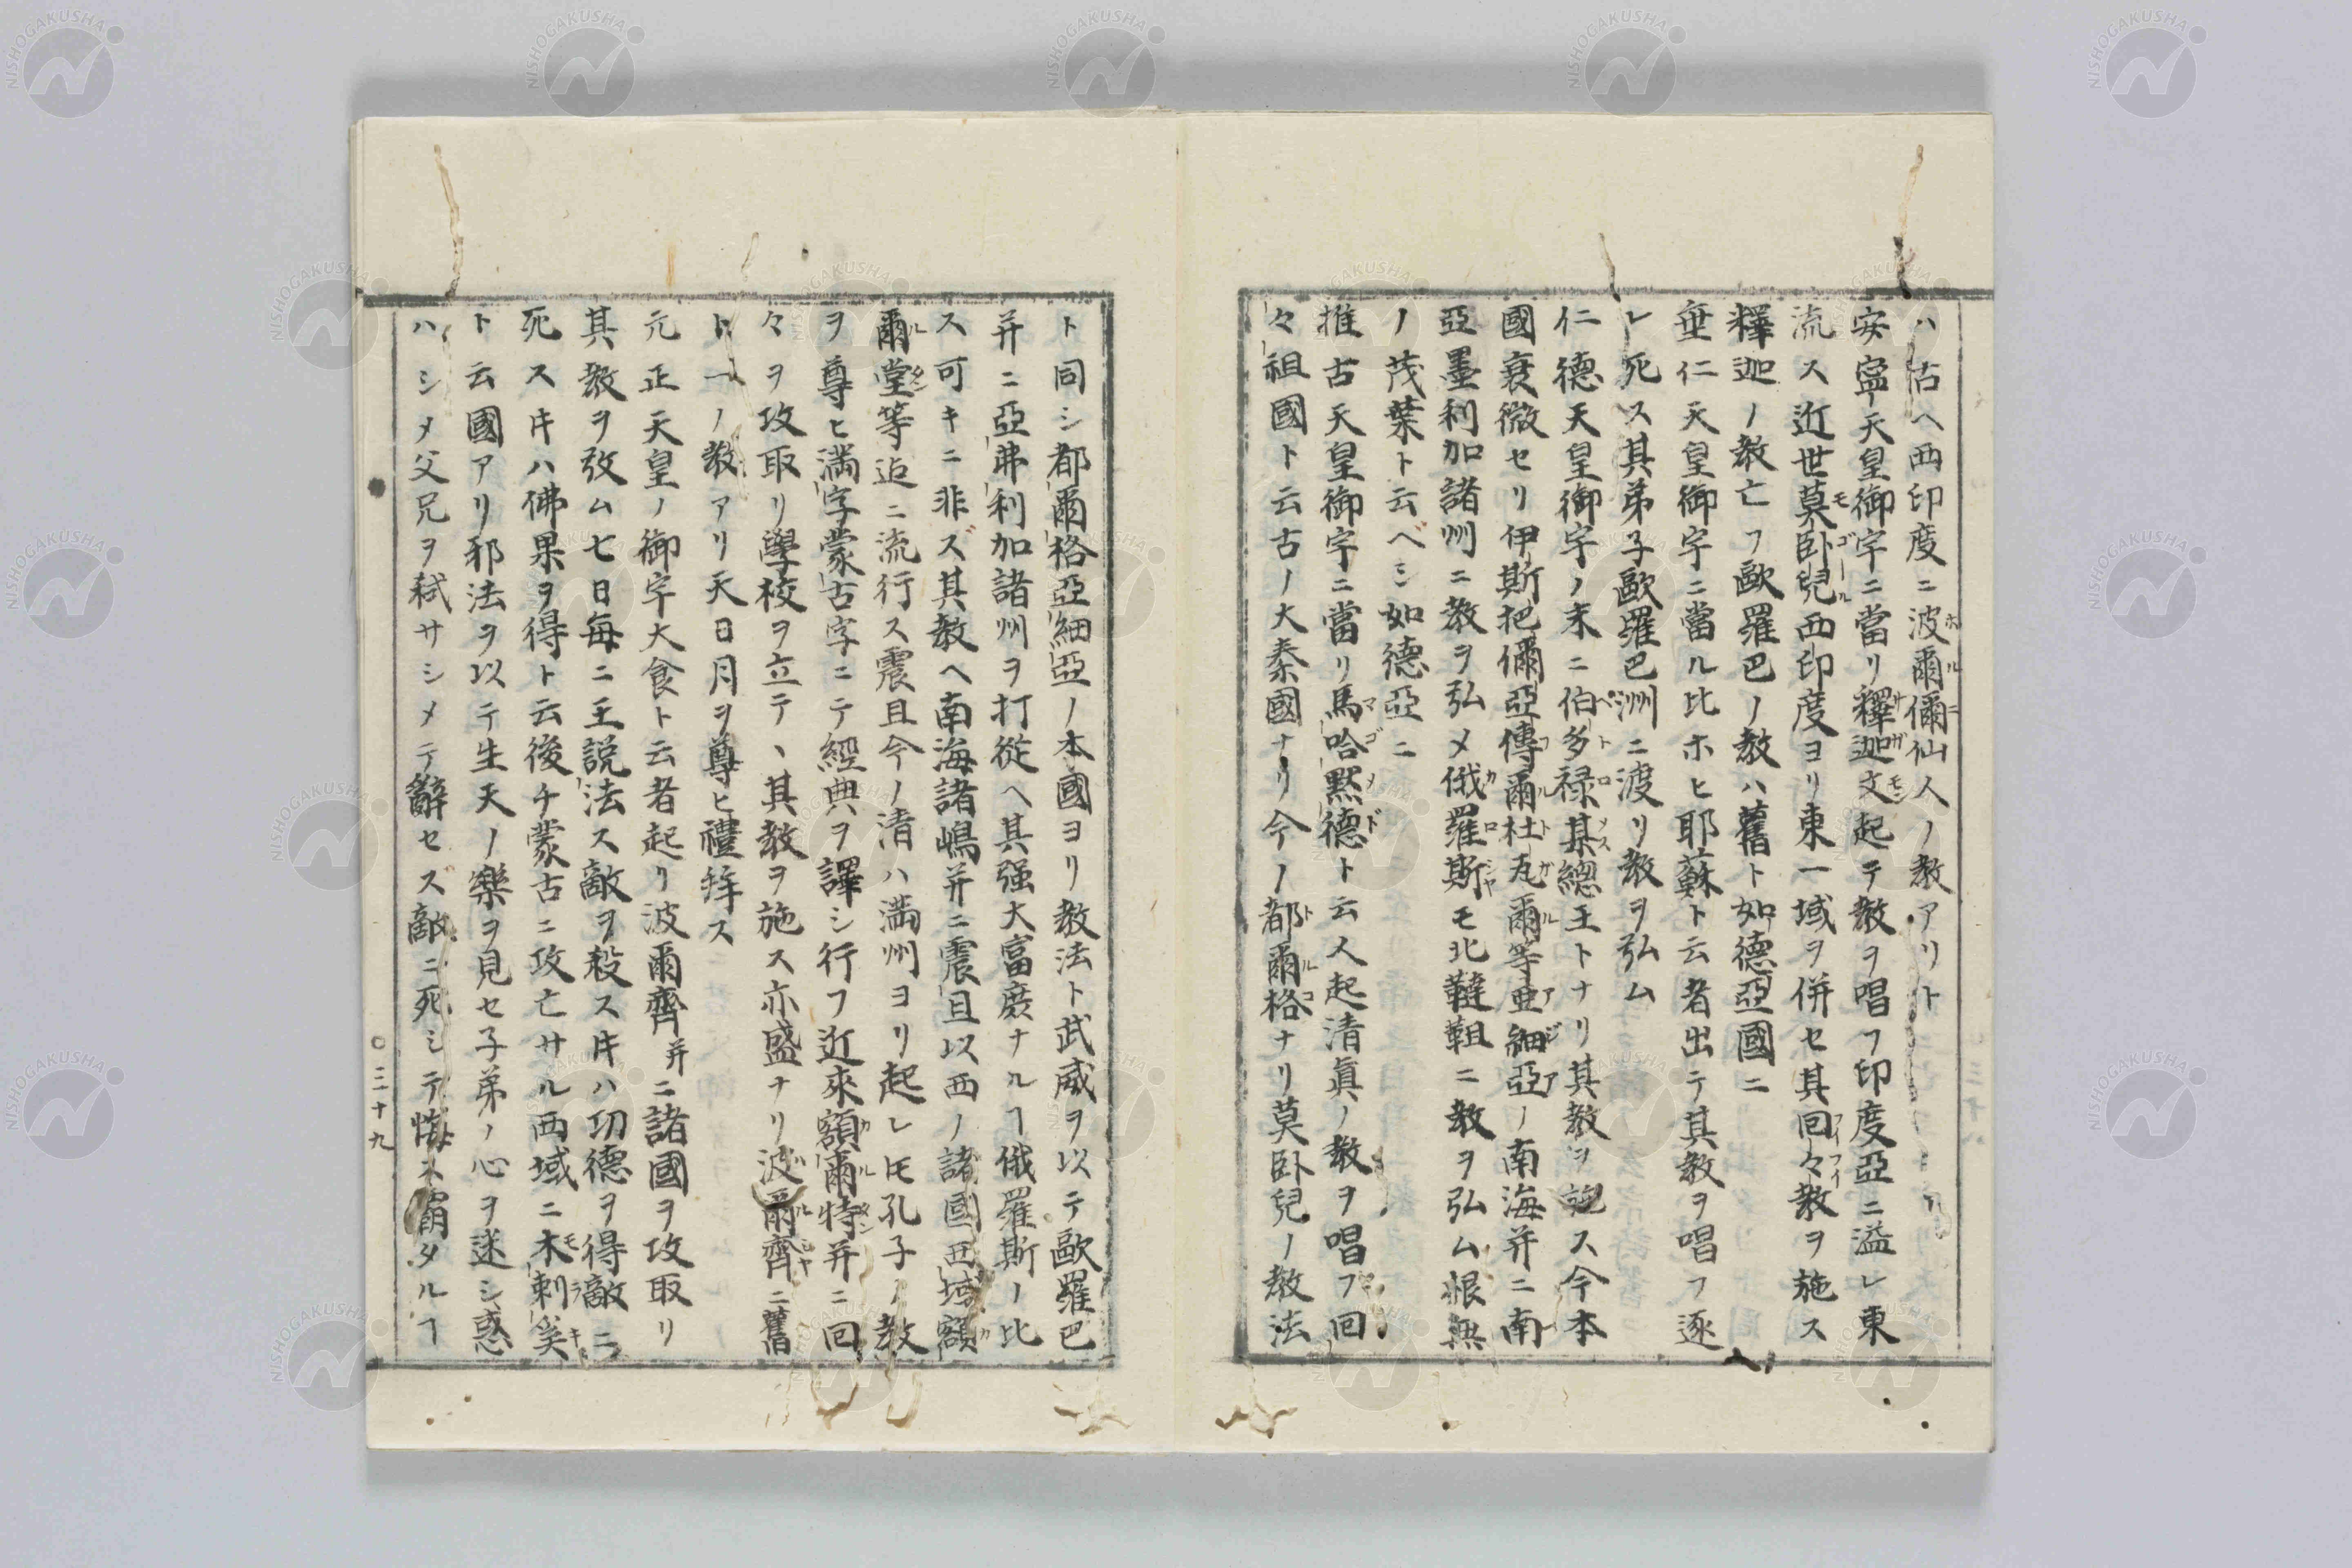 ハ古ヘ西印度ニ波爾儞仙人ノ教アリト
安寧天皇御宇ニ當リ釋迦文起テ教ヲ唱フ印度亞ニ溢レ東
流ス近世莫臥兒西印度ヨリ東一域ヲ併セ其回々教ヲ施ス
釋迦ノ教亡フ歐羅巴ノ教ハ舊ト如德亞國ニ
垂仁天皇御宇ニ當ル比ホヒ耶蘇ト云者出テ其教ヲ唱フ逐
レ死ス其弟子歐羅巴洲ニ渡リ教ヲ弘ム
仁德天皇御宇ノ末ニ伯多禄某總王トナリ其教ヲ施ス今本
國衰微セリ伊斯把儞亞傳爾杜瓦爾等亜細亞ノ南海并ニ南
亞墨利加諸州ニ教ヲ弘メ俄羅斯モ北韃靼ニ教ヲ弘ム根無
ノ茂葉ト云ベシ如德亞ニ
推古天皇御宇ニ當リ馬哈黙德ト云人起清眞ノ教ヲ唱フ回
々祖國ト云古ノ大秦國ナリ今ノ都爾格ナリ莫臥兒ノ教法
ト同シ都爾格亞細亞ノ本國ヨリ教法ト武威ヲ以テ歐羅巴
并ニ亞弗利加諸州ヲ打從ヘ其强大富廣ナルヿ俄羅斯ノ比
ス可キニ非ズ其教ヘ南海諸嶋并ニ震且以西ノ諸國西域額
爾堂等迄ニ流行ス震且今ノ清ハ満州ヨリ起レ𪜈孔子ノ教
ヲ尊ヒ満字蒙古字ニテ經典ヲ譯シ行フ近來額爾特并ニ回
々ヲ攻取リ學校ヲ立テヽ其教ヲ施ス亦盛ナリ波爾齊ニ舊
ト一ノ教アリ天日月ヲ尊ヒ禮拜ス
元正天皇ノ御宇大食ト云者起リ波爾齊并ニ諸國ヲ攻取リ
其教ヲ攷ム七日毎ニ王説法ス敵ヲ殺ス片ハ功德ヲ得敵ニ
死ス片ハ佛果ヲ得ト云後チ蒙古ニ攻亡サル西域ニ木剌奚
ト云國アリ邪法ヲ以テ生天ノ樂ヲ見セ子弟ノ心ヲ迷シ惑
ハシメ父兄ヲ弑サシメテ辭セス敵ニ死シテ悔ス覇タルヿ
三十九